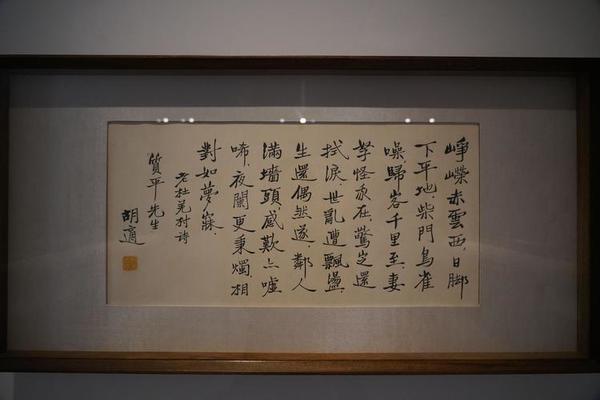 崢嶸赤雲西，日脚
下平地。柴門鳥雀
噪，歸客千里至。妻
孥怪我在，驚定還
拭淚。世亂遭飄盪，
生還偶然遂。鄰人
滿墻頭，感歎亦噓
唏。夜闌更秉燭，相
對如夢寐。
老杜羌村詩
質平先生
胡適